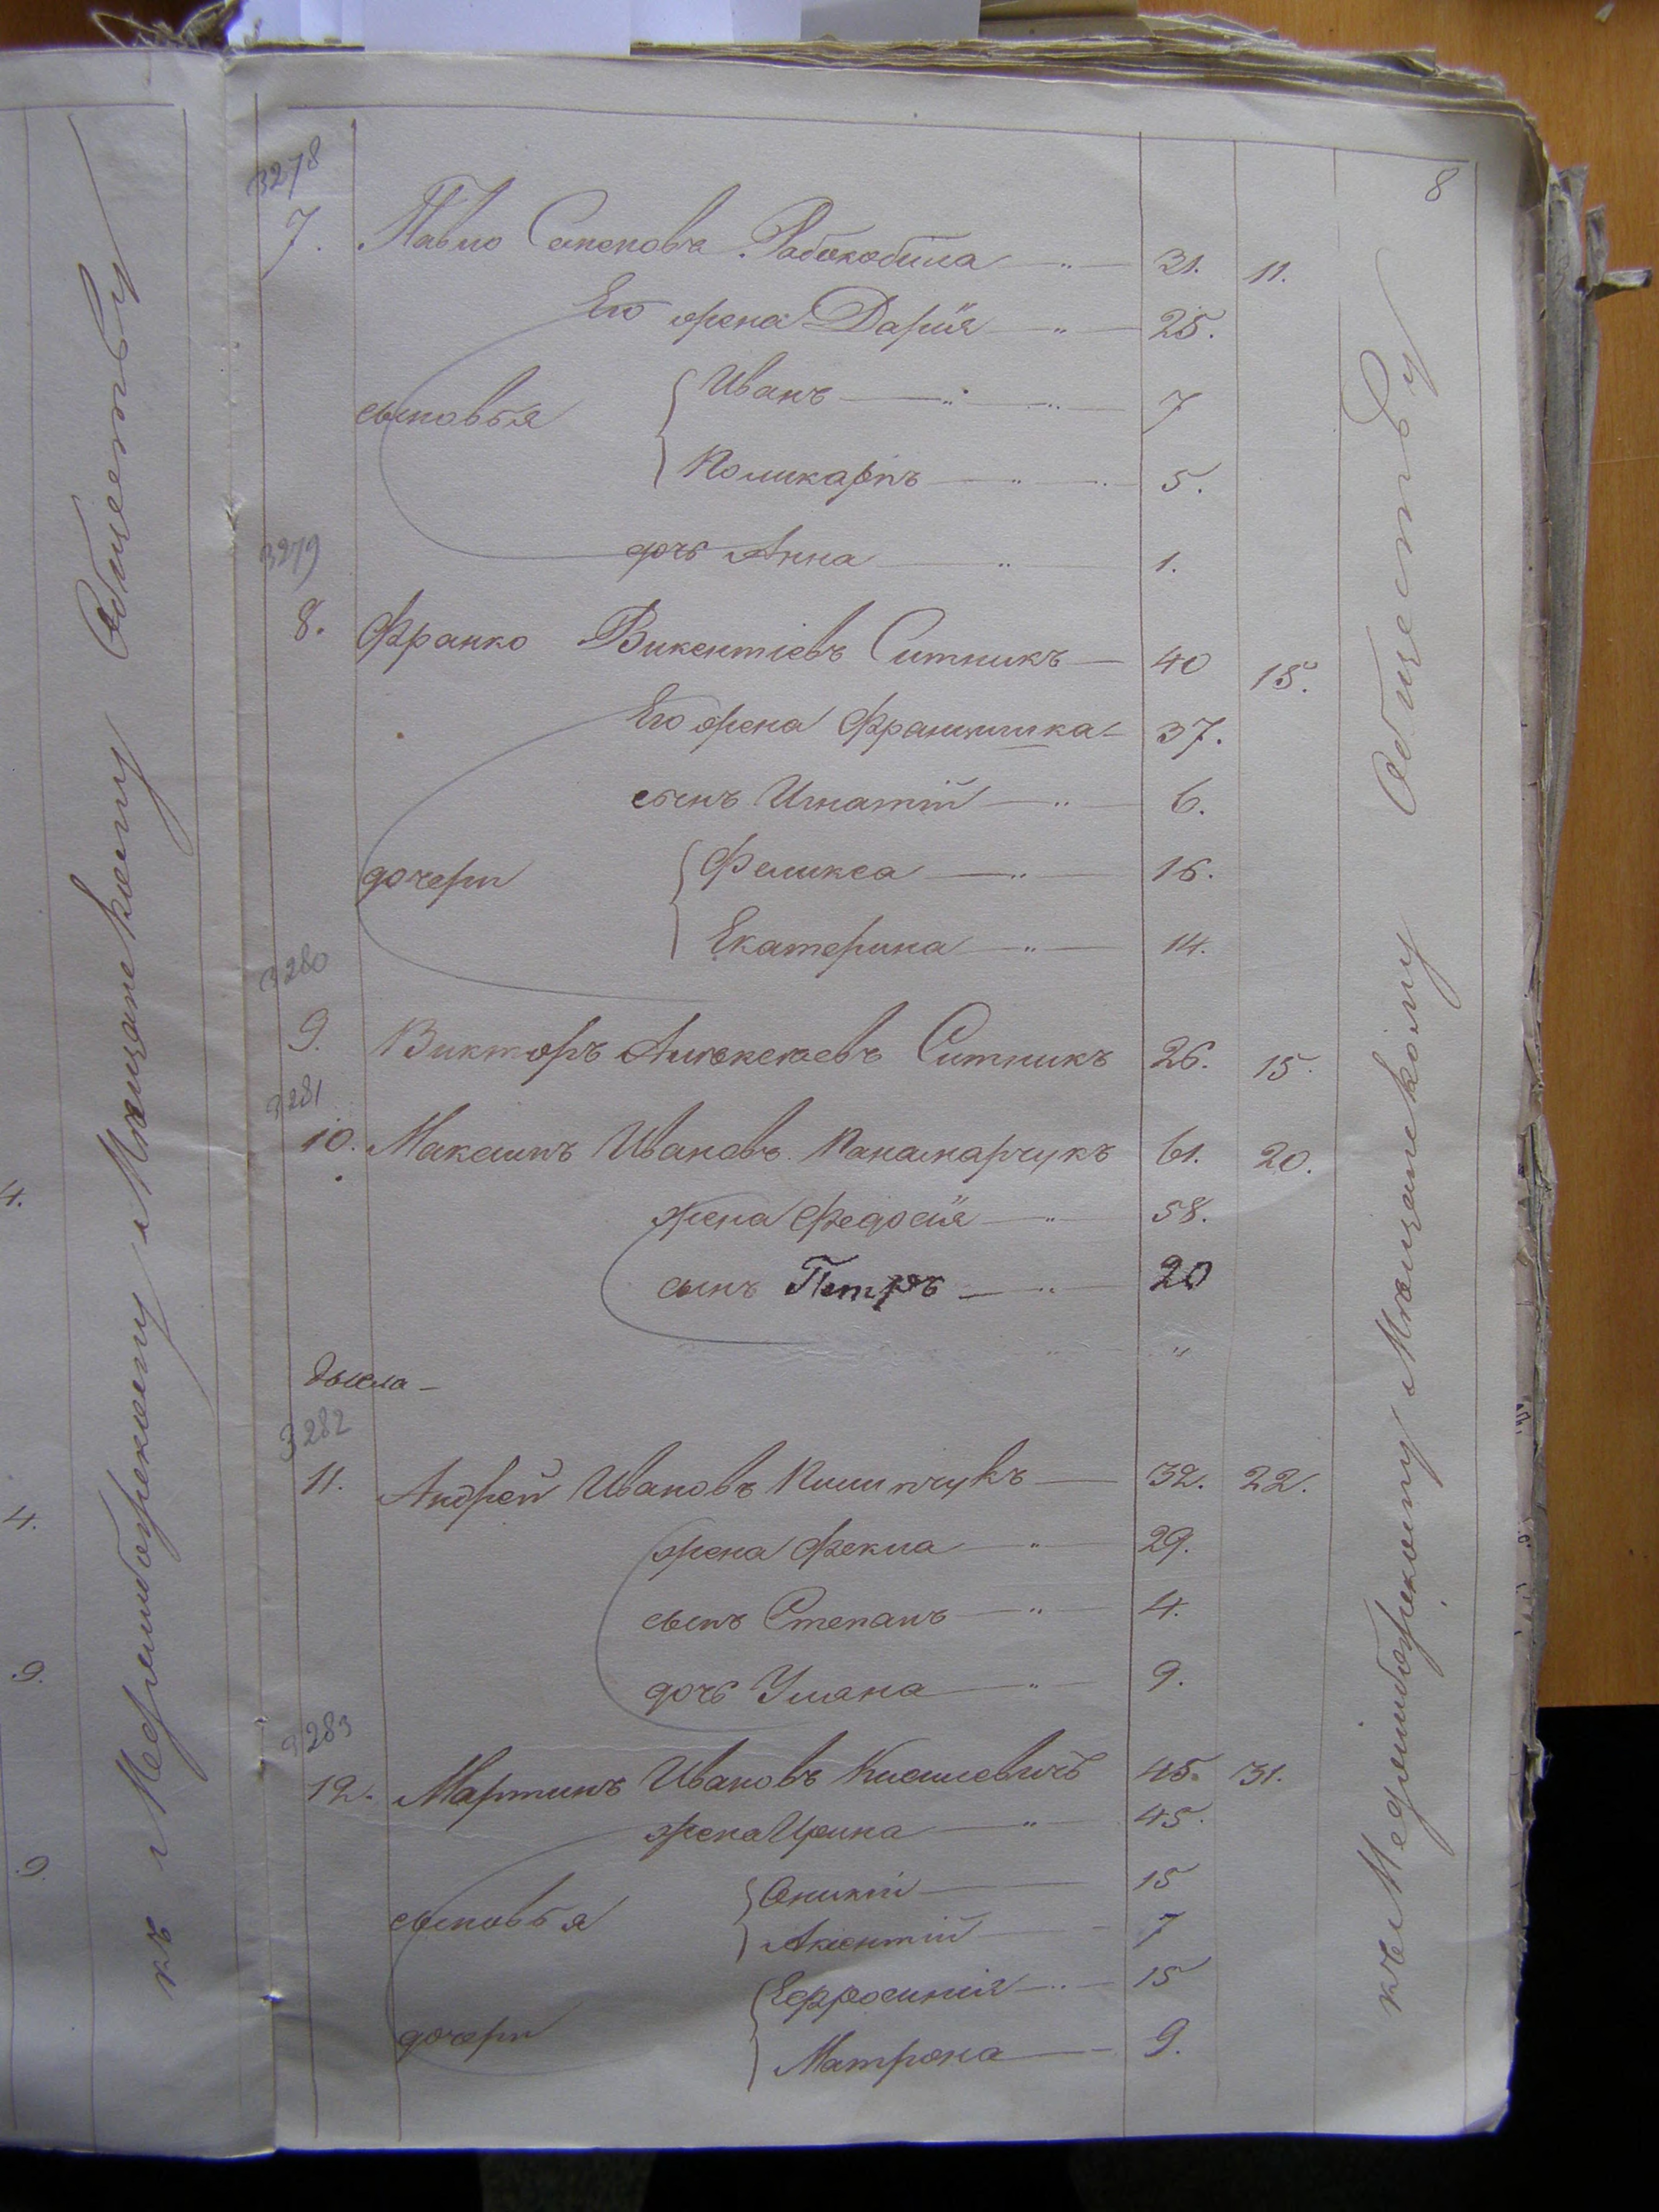 8
3278
7. Павло Семеновъ Рабокобила 31. 11.
Его жена Дарiя 25.
сыновья
Иванъ 7
Поликарпъ 5.
дочь Анна 1.
3279
8. Франко Викентiевъ Ситникъ 40 15.
Его жена Францишка 37.
сынъ Игнатiй 6.
дочери
Феликса 16.
Екатерина 14.
3280
9. Викторъ Алексеевъ Ситникъ 26. 15.
3281
10. Максимъ Ивановъ Панамарчукъ 61. 20.
жена Федосiя 58.
сынъ Петръ 20
3282
11. Андрей Ивановъ 32. 22.
жена Фекла 29.
сынъ Степанъ 4.
дочь Уляна 9.
3283
12. Мартинъ Ивановъ 45. 31.
жена Ирина 45.
сыновья
Оникiй 15
Аксентiй 7
дочери
Ефросинiя 15
Матрона 9.
къ Меджибожскому Мещанскому Обществу
къ Меджибожскому Мещанскому Обществу
4.
4.
9.
9.